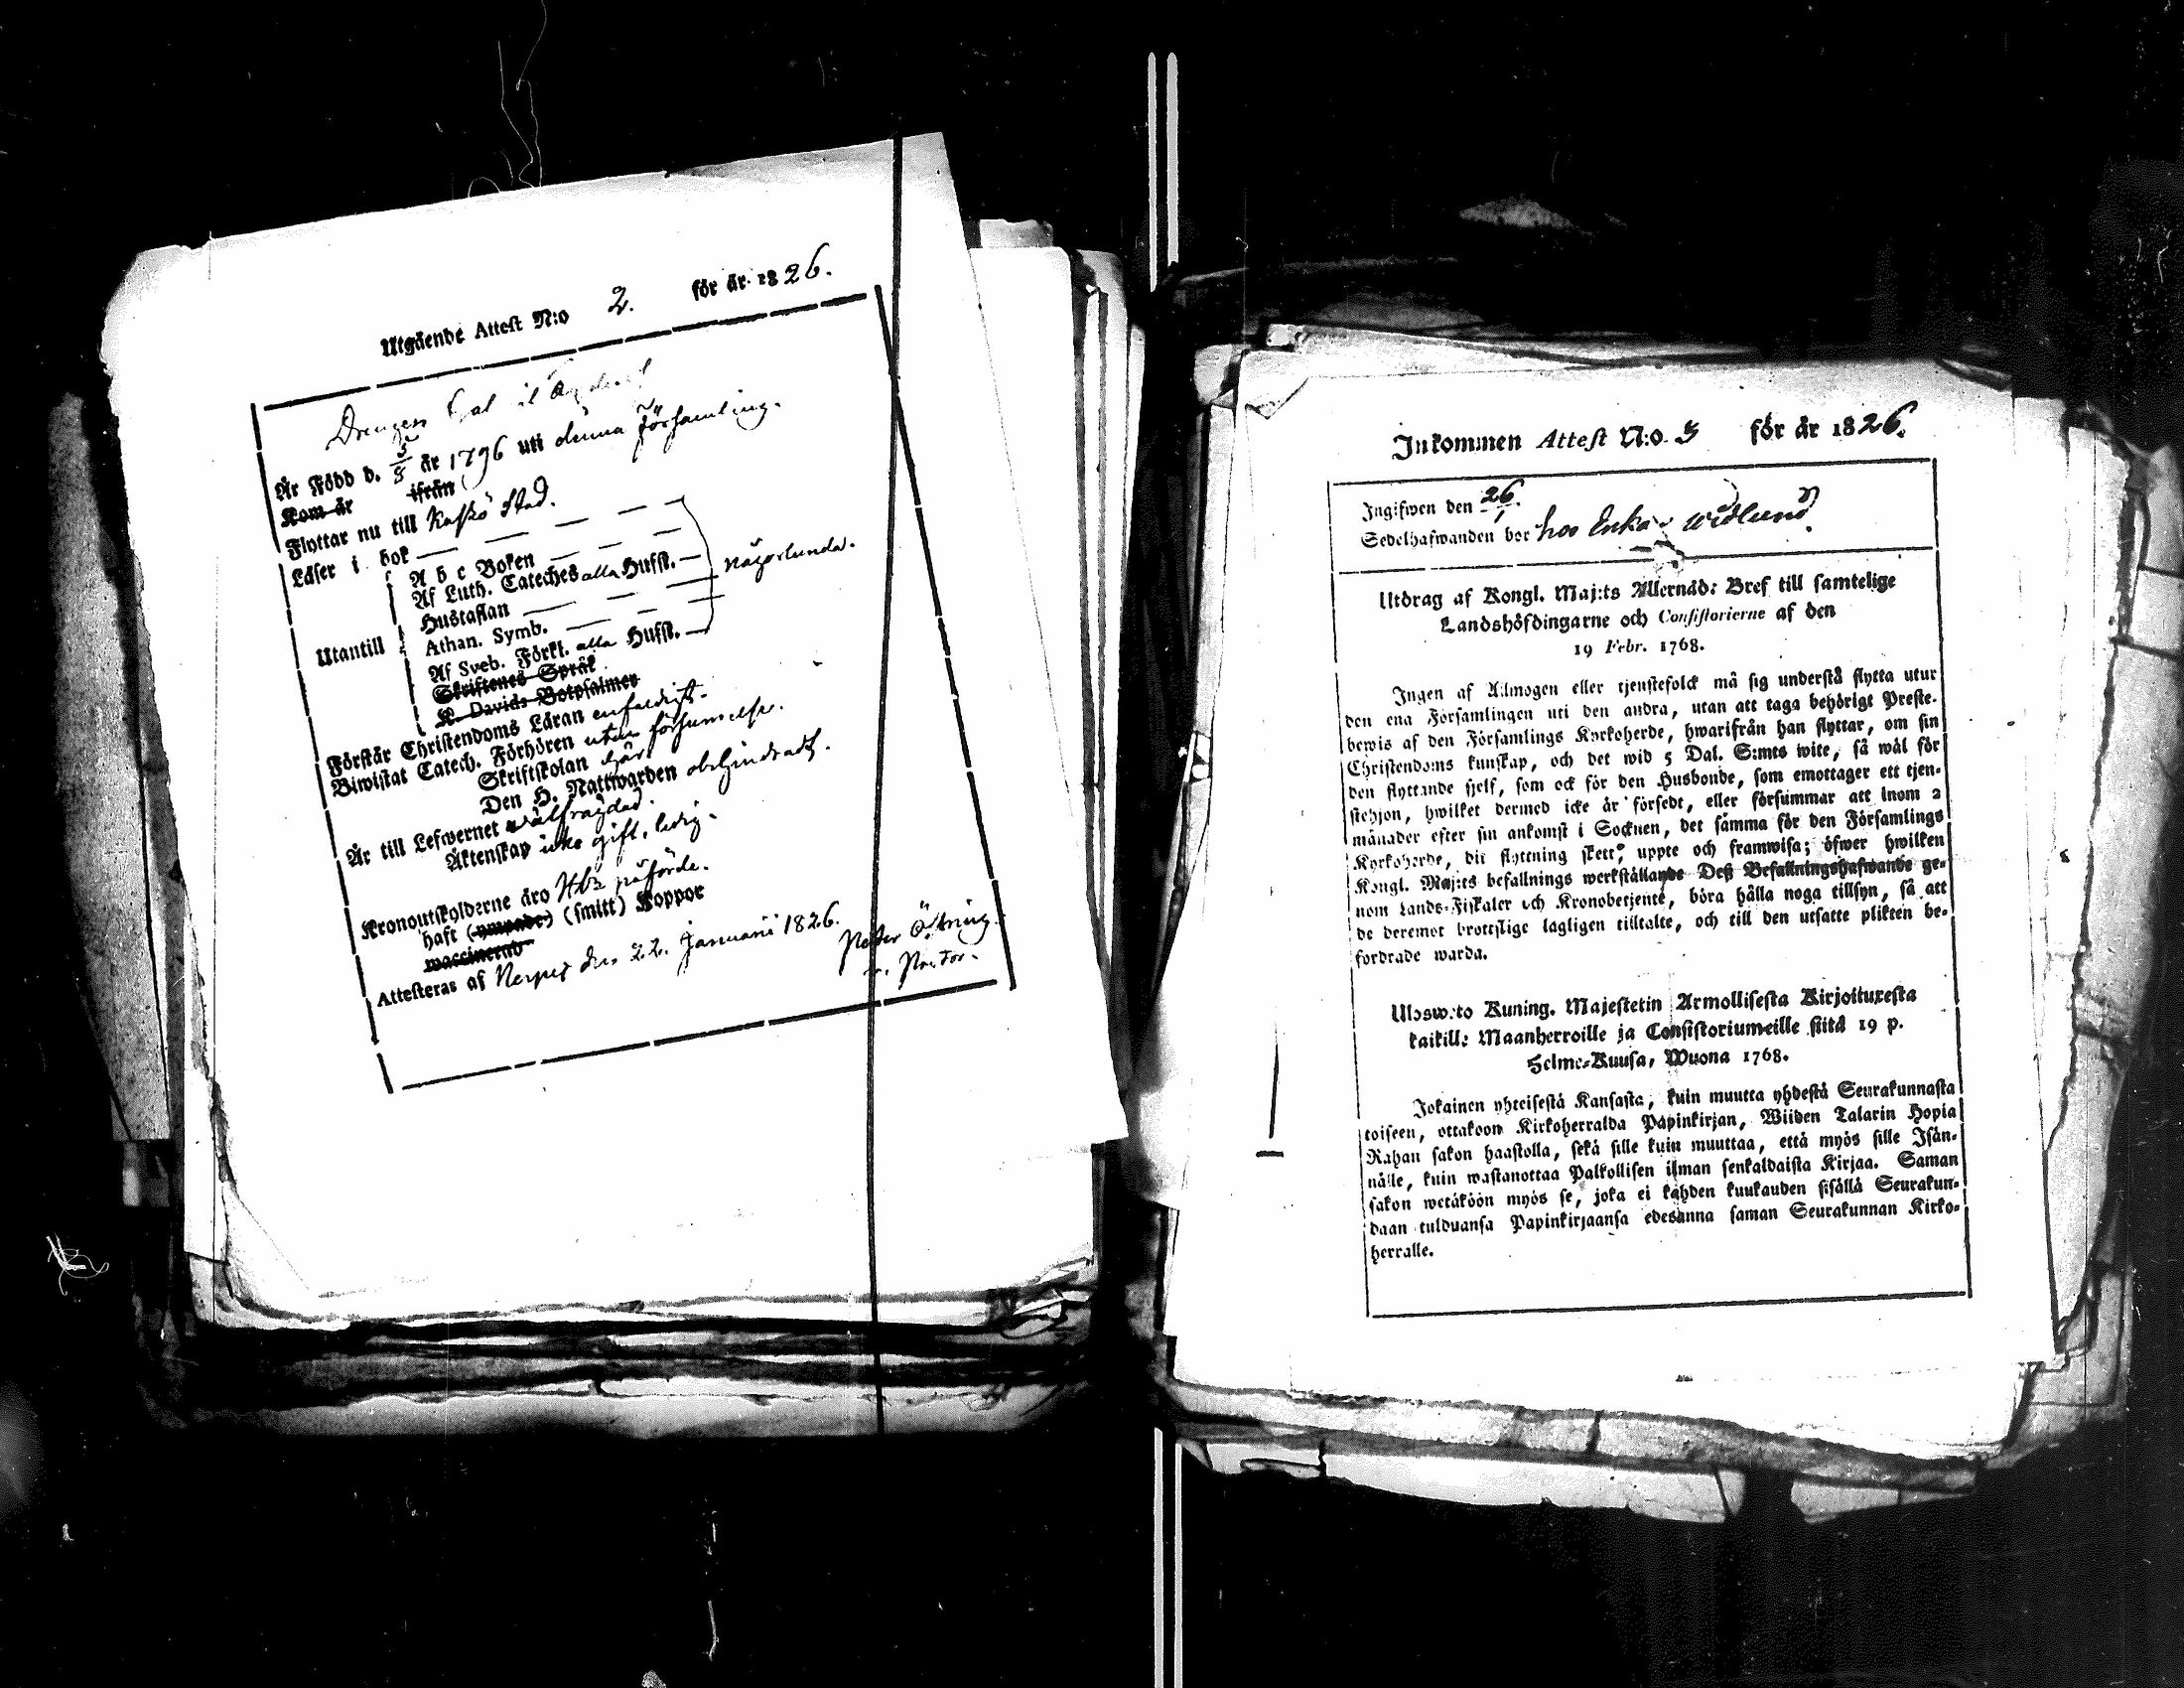 Utgående Attest N:o 2. för år 1826.
Drengen
Är Född d. 5/8 år 1796 uti denna Församling.
Kom år ifrån
Flyttar nu till Kaskö Stad.
Läser i bok — — — —
Utantill
A b c Boken — — —
Af Luth. Cateches alla Hufst. —
Hustaflan — — —
Athan. Symb. — — —
Af Sveb. Förkl. alla Hufst. —
någorlunda.
Skriftenes Språk
K. Davids Botpsalmer
Förstår Christendoms Läran enfaldigt.
Biwistat Catech. Förhören utan försummelse.
Skriftskolan här
Den H. Nattwarden obehindradt.
Är till Lefwernet wälfrägdad.
Äktenskap icke gift, ledig.
Kronoutskylderne äro påförde.
haft (ympade) (smitt) Koppor
waccinerad
Attesteras af Nerpes den 22. Januarii 1826.
Peter Östring
v. Pastor.
Inkommen Attest N:o 3 för år 1826.
Ingifwen den 26/1.
Sedelhafwanden bor hos Enka Widlund.
Utdrag af Kongl. Maj:ts Allernåd: Bref till samtelige
Landshöfdingarne och Consistorierne af den
19 Febr. 1768.
Ingen af Allmogen eller tjenstefolck må sig understå flytta utur
den ena Församlingen uti den andra, utan att taga behörigt Preste-
bewis af den Församlings Kyrkoherde, hwarifrån han flyttar, om sin
Christendoms kunskap, och det wid 5 Dal. S:mts wite, så wäl för
den flyttande sjelf, som ock för den Husbonde, som emottager ett tjen-
stehjon, hwilket dermed icke är försedt, eller försummar att inom 2
månader efter sin ankomst i Socknen, det samma för den Församlings
Kyrkoherde, dit flyttning skett, uppte och framwisa; öfwer hwilken
Kongl. Maj:ts befallnings werkställande Deß Befallningshafwande ge-
nom Lands-Fiskaler och Kronobetjente, böra hålla noga tillsyn, så att
de deremot brottslige lagligen tilltalte, och till den utsatte plikten be-
fordrade warda.
Uloswoto Kuning. Majestetin Armollisesta Kirjoituxesta
kaikill: Maanherroille ja Consistoriumeille siitä 19 p.
Helme-Kuusa, Wuona 1768.
Jokainen yhteisestä Kansasta, kuin muutta yhdestä Seurakunnasta
toiseen, ottakoon Kirkoherralda Papinkirjan, Wiiden Talarin Hopia
Rahan sakon haastolla, sekä sille kuin muuttaa, että myös sille Isän-
nälle, kuin wastanottaa Palkollisen ilman senkaldaista Kirjaa. Saman
sakon wetäköön myös se, joka ei kahden kuukauden sisällä Seurakun-
daan tulduansa Papinkirjaansa edesanna saman Seurakunnan Kirko-
herralle.